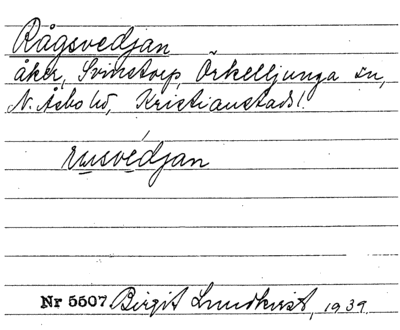 Rågsvedjan
åker, Svinstorp, Örkelljunga sn,
N. Åsbo hd, Kristianstads l.
rusvédjan
Nr 5507 Birgit Lundkvist, 1939.